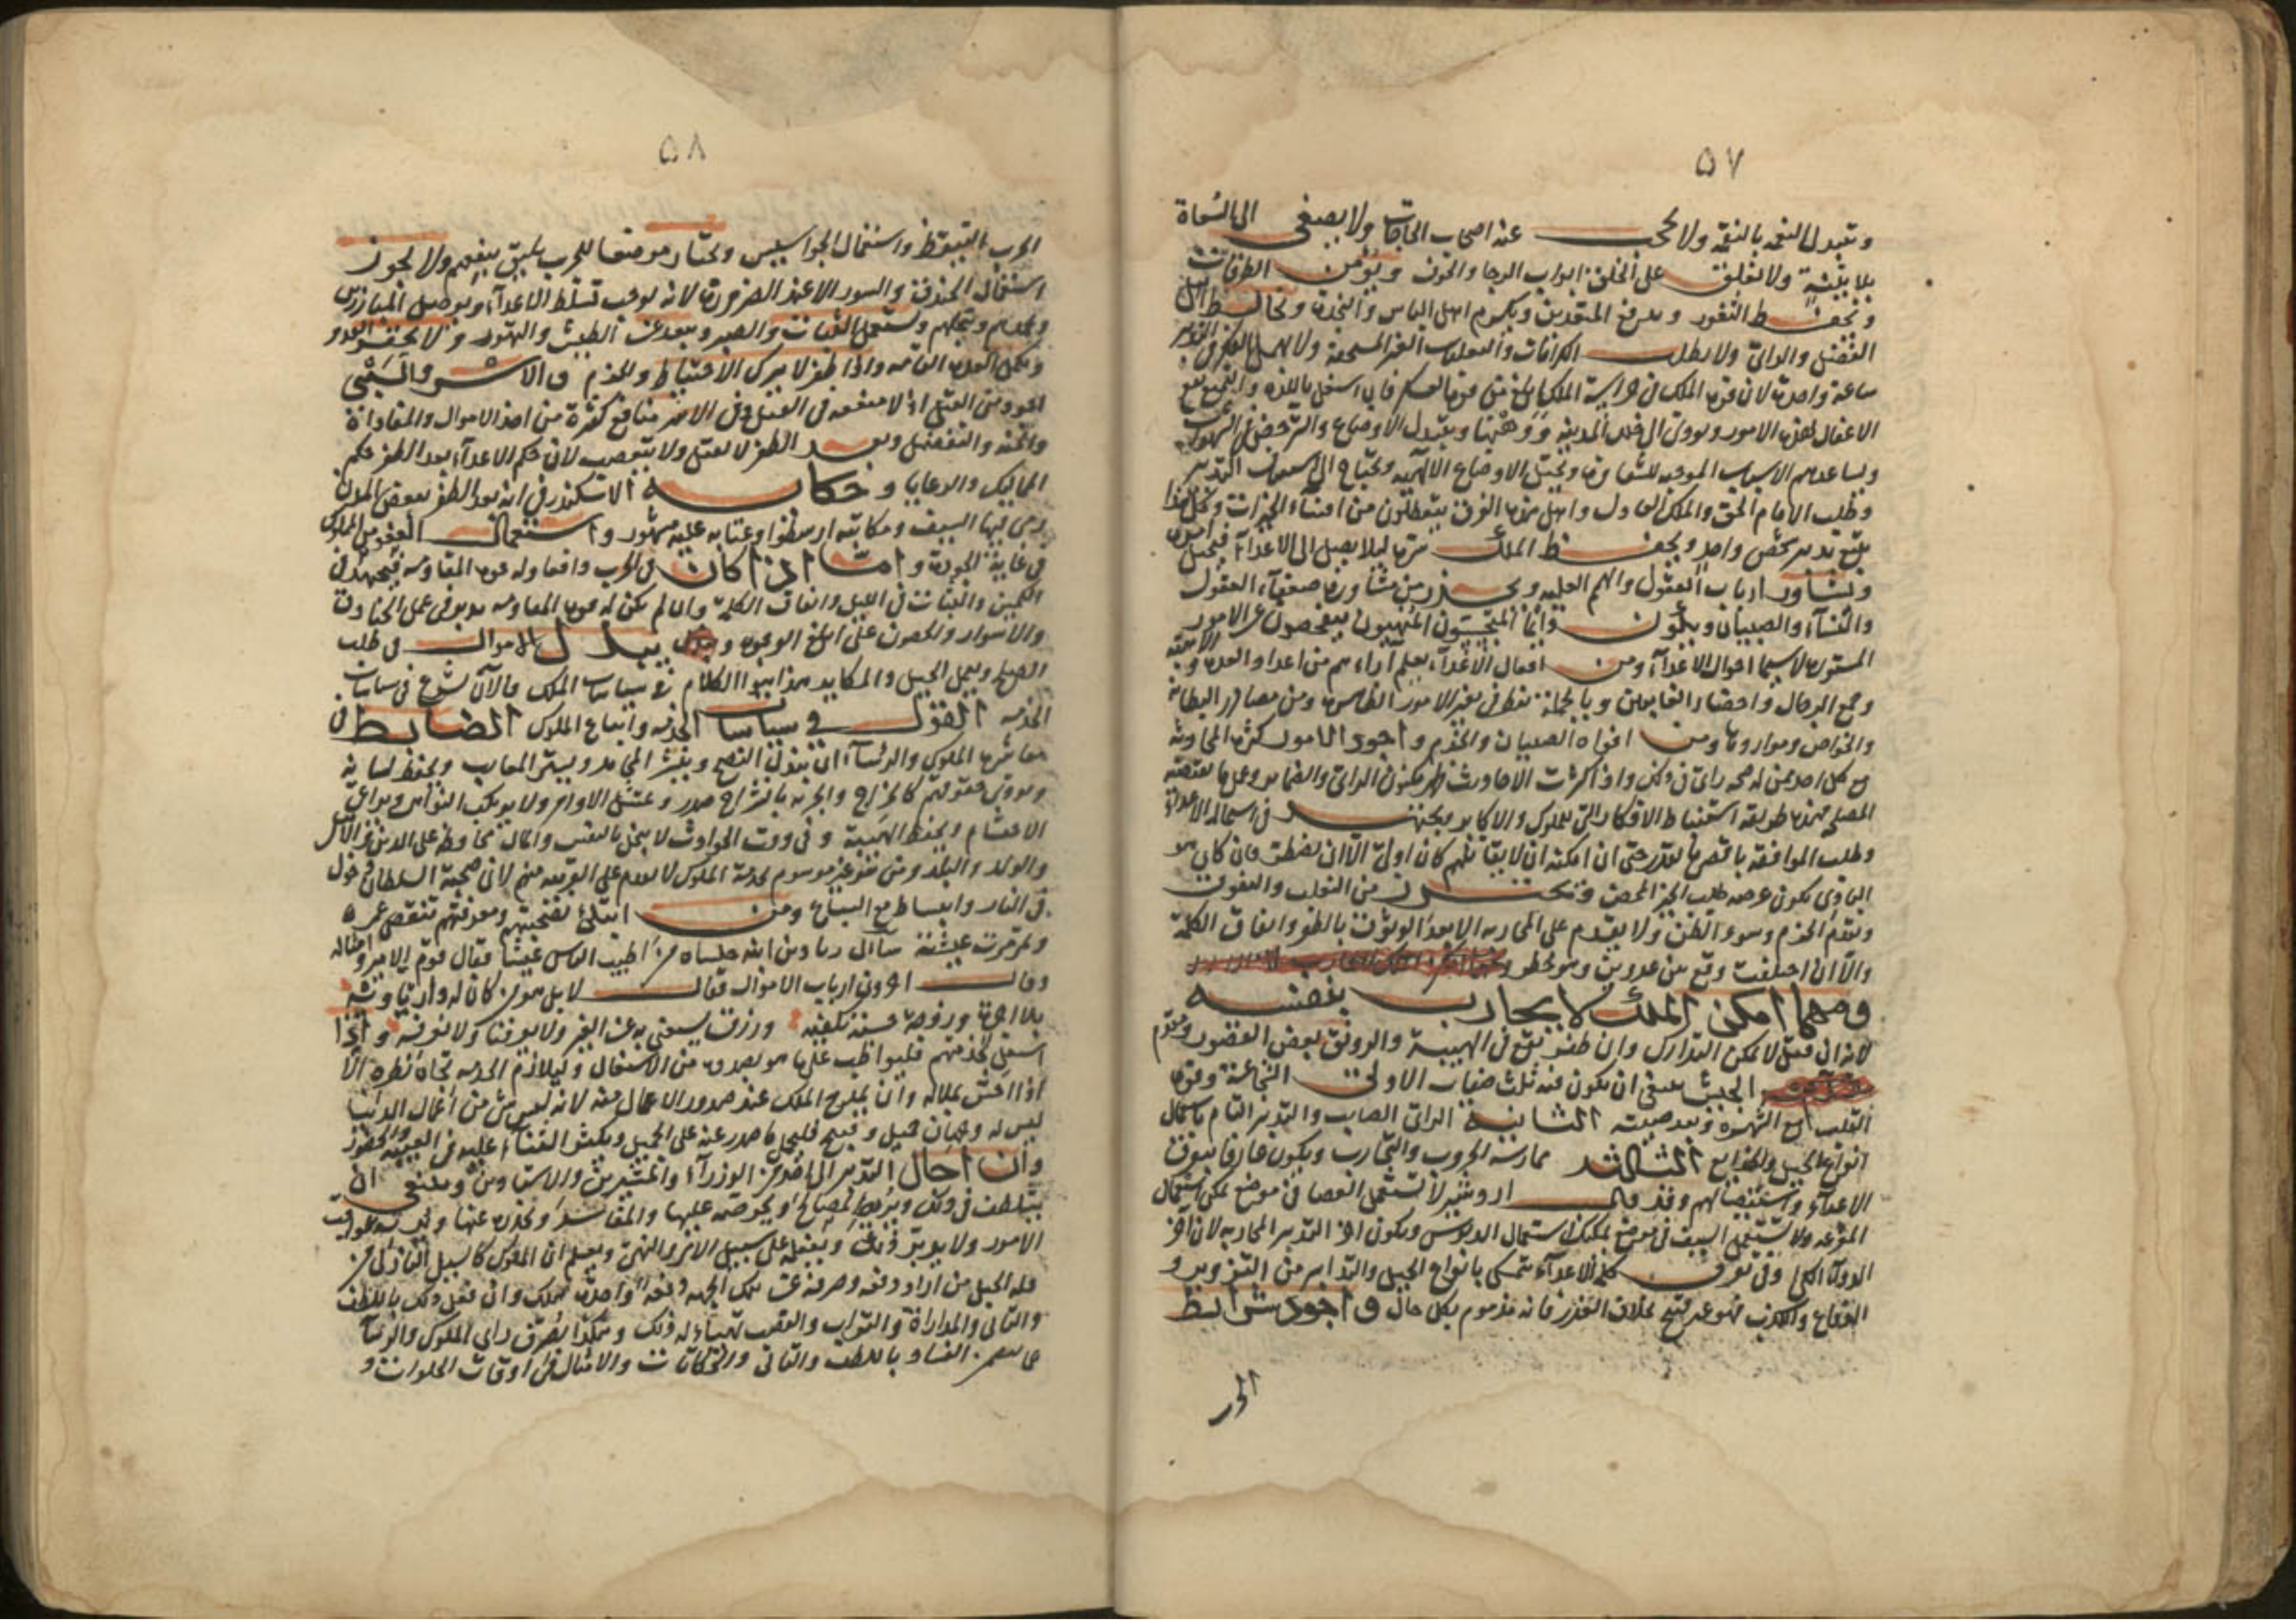 ٥٧
وتتبدل النعمة بالنقمة ولا يحجب عنه اصحاب الحاجات ولا يصغى الى السعاة
بلا بينة ولا تغلق على الخلق ابواب الرجا والخوف ويؤمن الطرقات
ويحفظ الثغور و المتقدمين ويكرم اهل الباس والنجدة ويخالط اهل
الفضل والراى ولا يطلب الغير المستحقة ولا يهمل الفكر فى التدبير
ساعة واحدة لان قوة الملك فى حراسة الملك ابلغ من قوة العسكر فان اشتغل باللذة
الامور ويؤدى الى خلل المدينة ووهنها ويتبدل الاوضاع والترخص فى الشهوات
ويساعدهم الاسباب الموجبة للشقاوة ويختل الاوضاع الالهية ويحتاج الى التدبير
وطلب الامام الحق والملك العادل واهل هذا القرن يتعطلون من اقتناء الخيرات وكل هذا
يقع بتدبير شخص واحد ويحفظ الملك سره ليلا يصل الى الاعداء
ويشاور ارباب العقول والهمم العلية ويحذر من مشاورة ضعفاء العقول
والنساء والصبيان ويكون دائما المتجسسون المنهيون يتفحصون عن الامور
المستورة لاسيما احوال الاعداء ومن افعال الاعداء يعلم اراءهم من اعداد العدة
وجمع الرجال واحضار الغايبين وبالجملة ينظر فى تغير الامور الظاهرة ومن مصادر البطانة
والخواص ومواردها ومن افواه الصبيان والخدم واجود الامور كثرة المحادثة
مع كل احد ممن له صحة راى فى ذلك واذا كثرت الاحاديث ظهر مكنون الراى والضماير
المصلحة فهذه طريقة استنباط الافكار التى للملوك والاكابر ويجتهد فى استمالة الاعداء
وطلب الموافقة باقصى ما يقدر حتى ان امكنه ان لا يقاتلهم كان اولى الا ان يضطر فان كان هو
البادى يكون غرضه طلب الخير المحض ويحترز من التغلب والتفوق
ويقدم الحزم وسوء الظن ولا يقدم على المحاربة الا بعد الوثوق بالظفر واتفاق الكلمة
والا ان اختلفت وقع بين عدوين وهو خطر
ومهما امكن الملك لا يحارب بنفسه
لانه ان قتل لا يمكن التدارك وان ظفر يقع فى الهيبة والرونق بعض القصور ومقدم
الجيش ينبغى ان يكون فيه ثلث صفات الاولى الشجاعة وقوة
القلب مع الشهرة وبعد صيته الثانية الراى الصايب والتدبير التام باستعمال
انواع الحيل والخدايع الثالثة ممارسة الحروب والتجارب ويكون عارفا بتفرق
الاعداء واستيصالهم وقد قال اردشير لا تستعمل العصا فى موضع يمكن استعمال
المقرعة ولا تستعمل السيف فى موضع يمكنك استعمال الدبوس ويكون اخر التدبير المحاربة لان اخر
الدواء الكى وفى تفرق كلمة الاعداء يتمسك بانواع الحيل والتدابير من التزوير و
الخداع والكذب فهو غير قبيح بخلاف الغدر فانه مذموم بكل حال واجود شرايط
الحرب
٥٨
الحرب التيقظ واستعمال الجواسيس ويختار موضعا للحرب يليق ولا يجوز
استعمال الخندق والسور الا عند الضرورة لانه يوجب تسلط الاعداء
ويستعمل الثبات والصبر ويبعد عن الطيش والتهور ولا يحقر العدو
واذا ظفر لا يترك الاحتياط والحزم والاسر والسبى
اجود من القتل اذ لا منفعة فى القتل وفى الاسر منافع كثيرة من اخذ الاموال والمفاداة
والمنة والتفضل وبعد الظفر لا يقتل ولا يتعصب لان حكم الاعداء بعد الظفر حكم
المماليك والرعايا وحكاية الاسكندر فى انه بعد الظفر ببعض المدن
السيف ومكاتبة ارسطو وعتابه عليه مشهور واستعمال العفو من الملوك
فى غاية الجودة واما اذا كان فى الحرب دافعا وله قوة المقاومة فيجتهد فى
الكمين والبيات فى الليل واتفاق الكلمة وان لم يكن له قوة المقاومة فى عمل الخنادق
والاسوار والحصون على ابلغ الوجوه و يبذل الاموال فى طلب
الصلح ويعمل الحيل والمكايد هذا هو الكلام فى سياسات الملك والان نشرع فى سياسات
الخدمة القول فى سياسات الخدمة واتباع الملوك الضابط فى
معاشرة الملوك والرئساء ان يبذل النصح وينشر المحامد ويستر المعايب ويحفظ لسانه
ويؤدى حقوقهم كالخراج والجزية بانشراح صدر ويمتثل الاوامر ولا يرتكب النواهى ويراعى
الاحتشام ويحفظ الهيبة وفى وقت الحوادث لا يبخل بالنفس والمال محافظة على الدين والاهل
والولد والبلد ومن هو غير موسوم بخدمة الملوك لا يقدم على القرب منهم لان صحبة السلطان دخول
فى النار وانبساط مع السباع ومن ابتلى بصحبتهم ومعرفتهم تنقص عمره
وتمررت عيشته سأل زياد بن ابيه جلساءه من اطيب الناس عيشا فقال قوم الامير وامثاله
وقال اخرون ارباب الاموال فقال لا بل هو من كان له دار ياويه
بلا اجرة وزوجة حسنة تكفيه ورزق يستغنى به عن الغير ولا يعرفنا ولا نعرفه واذا
اشتغل بخدمتهم فليواظب على ما هو بصدده من الاشتغال وليلازم الخدمة تجاه نظره الا
اذا احس بملاله وان يمدح الملك عند صدور الاعمال منه لانه ليس شئ من اعمال الدنيا
ليس له وجهان جميل وقبيح فليحمل ما صدر عنه على الجميل ويكثر الثناء عليه فى الغيبة والحضور
وان احال التدبير الى من الوزراء والمشيرين والاستاذين وينبغى ان
يتلطف فى ذلك المصالح ويحرضه عليها والمفاسد ويحذره عنها
الامور ولا يفعله على سبيل الامر والنهى ويعلم ان الملوك كالسيل النازل من
قلة الجبل من اراد دفعه وصرفه عن تلك الجهة دفعة واحدة هلك وان فعل ذلك باللطف
والتانى والمداراة والتراب والقصب تهيأ له ذلك وهكذا يصرف راى الملوك والرئساء
الفساد باللطف والتانى والحكايات والامثال فى اوقات الخلوات و